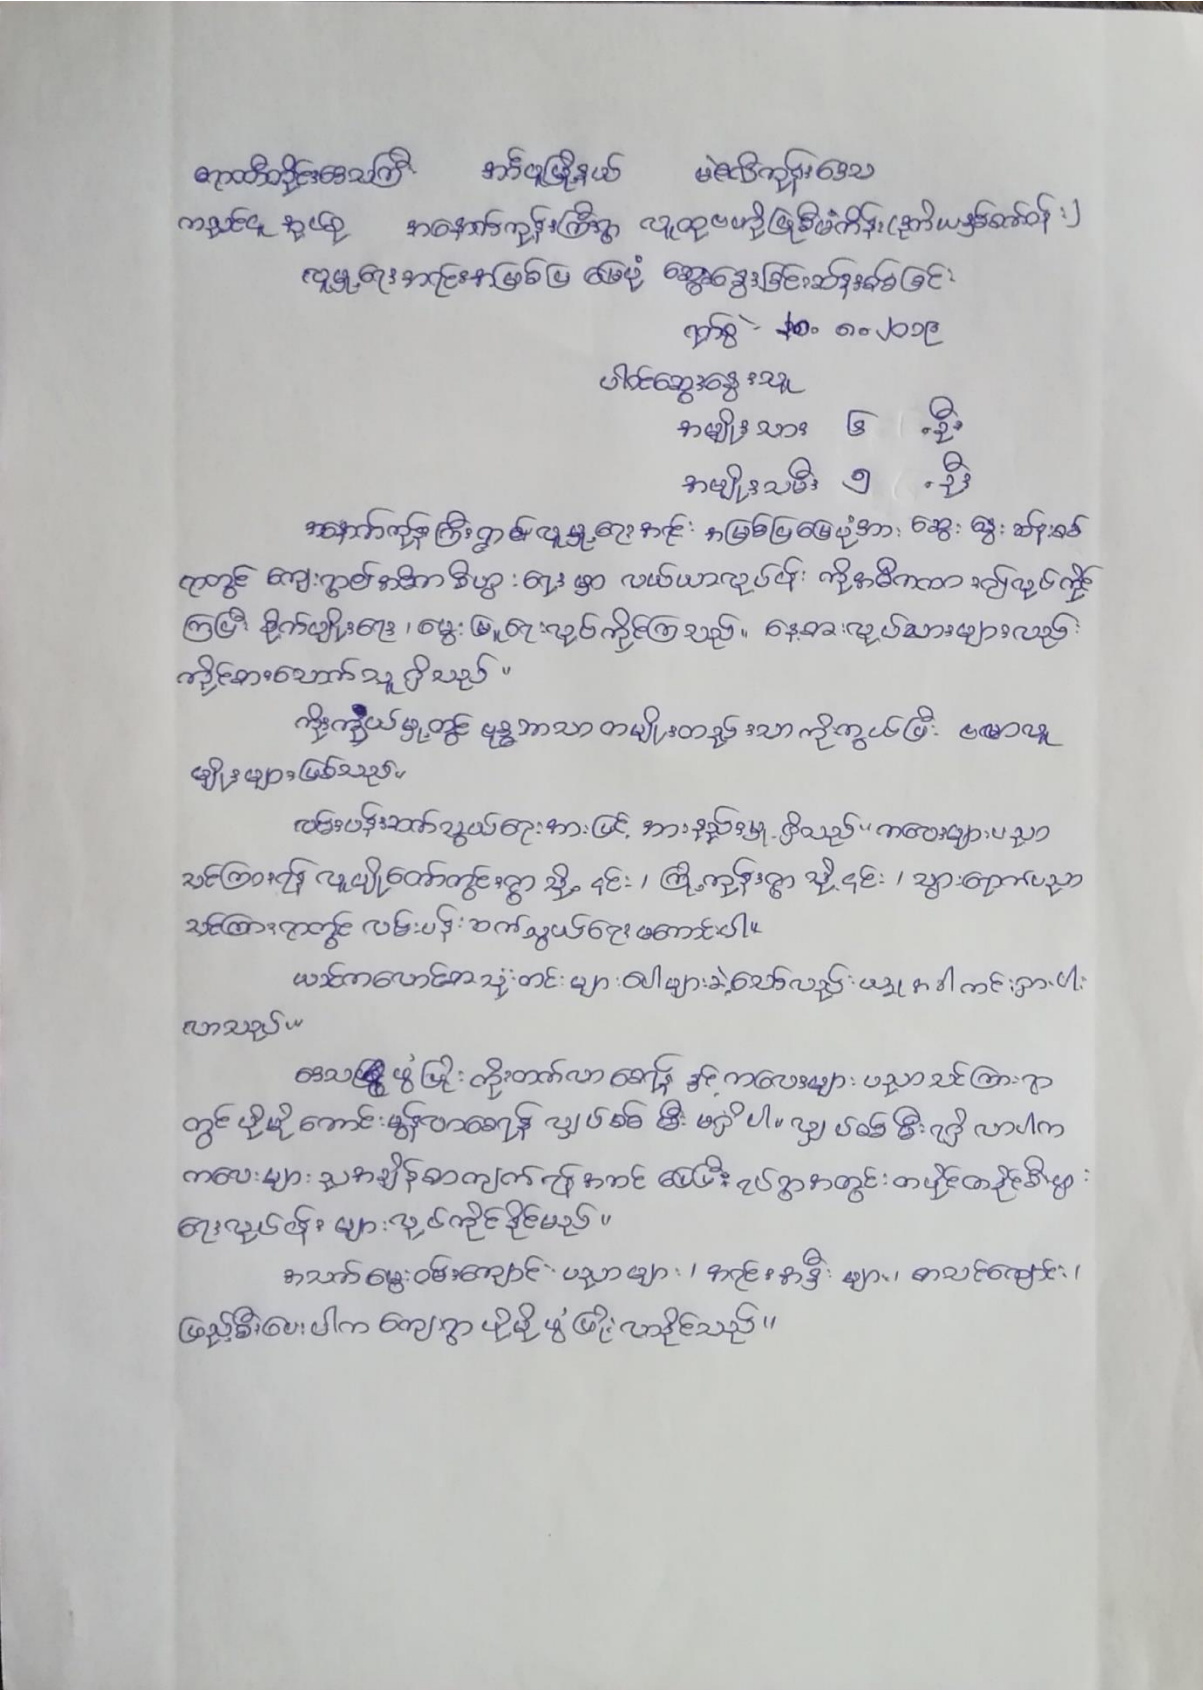 ဧရာဝတီတိုင်းဒေသကြီး အင်္ဂပူမြို့နယ် မဲဇလီကုန်းဒေသ
ကညင်ငူ အုပ်စု အနောက်ကုန်းကြီးရွာ လူထုဗဟိုပြုစီမံကိန်း (ဒုတိယနှစ်စက်ဝန်း)
လူမှုရေးအရင်းအမြစ်ပြ မြေပုံ ဆွေးနွေးခြင်းဆန်းစစ်ခြင်း
ရက်စွဲ - ၁၀. ၈. ၂၀၁၉
ပါဝင်ဆွေးနွေးသူ
အမျိုးသား ၆ ဦး
အမျိုးသမီး ၅ ဦး
အနောက်ကုန်းကြီးရွာ၏ လူမှုရေးအရင်း အမြစ်ပြမြေပုံအား ဆွေး နွေး ဆန်းစစ်
ရာတွင် ကျေးရွာ၏ အဓိက စီးပွားရေးမှာ လယ်ယာလုပ်ငန်း ကိုအဓိကထား၍လုပ်ကိုင်
ကြပြီး စိုက်ပျိုးရေး၊ မွေးမြူရေးလုပ်ကိုင်ကြသည်။ နေ့စားလုပ်သားများလည်း
ကိုင်စားသောက်သူ ရှိသည်။
ကိုးကွယ်မှုတွင် ဗုဒ္ဓဘာသာ တမျိုးတည်းသာ ကိုးကွယ်ပြီး ဗမာလူ
မျိုးများဖြစ်သည်။
လမ်းပန်းဆက်သွယ်ရေးအားဖြင့် အားနည်းမှု ရှိသည်။ ကလေးများပညာ
သင်ကြားရန် လူမျိုတော်တွင်းရွာ သို့ ၎င်း၊ ကြို့ကုန်းရွာ သို့ ၎င်း၊ သွားရောက်ပညာ
သင်ကြားရာတွင် လမ်းပန်းဆက်သွယ်ရေး မကောင်းပါ။
ယင်ကလောင်စာသုံးတင်းများ ပေါများခဲ့သော်လည်း ယခုအခါ ကင်းရှားပါး
လာသည်။
ဒေသဖွံ့ဖြိုး တိုးတက်လာစေရန် နှင့် ကလေးများ ပညာသင်ကြားရာ
တွင် ပိုမို ကောင်းမွန်လာစေရန် လျှပ်စစ် မီး မရှိပါ။ လျှပ်စစ် မီးရရှိလာပါက
ကလေးများ ညအချိန်စာကျက်ရန်အတင် မေပြီး ရပ်ရွာအတွင်း တပိုင်တနိုင်စီးပွား
ရေးလုပ်ငန်း များလုပ်ကိုင်နိုင်မည်။
အသက်မွေးဝမ်းကျောင်း ပညာများ၊ အရင်းအနှီးများ၊ စာသင်ကျောင်း၊
ဖြည့်စီးပေးပါက ကျေးရွာ ပိုမို ဖွံ့ဖြိုးလာနိုင်သည်။